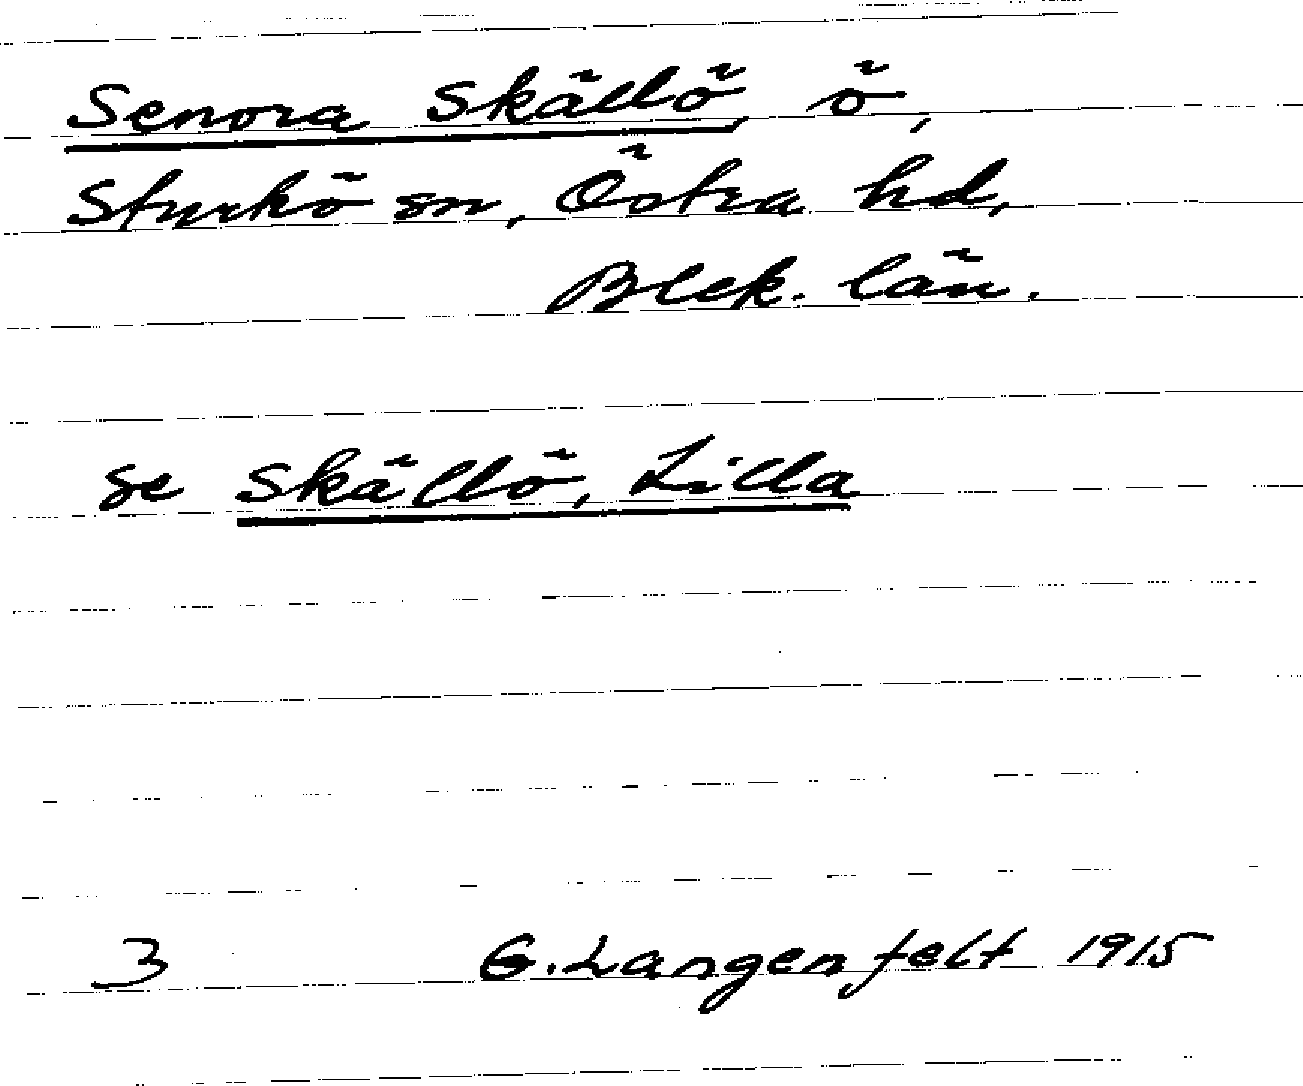 Senora Skällö, ö,
Sturkö sn, Östra hd,
Blek. län.
se Skällö, Lilla
3 G. Langenfelt 1915